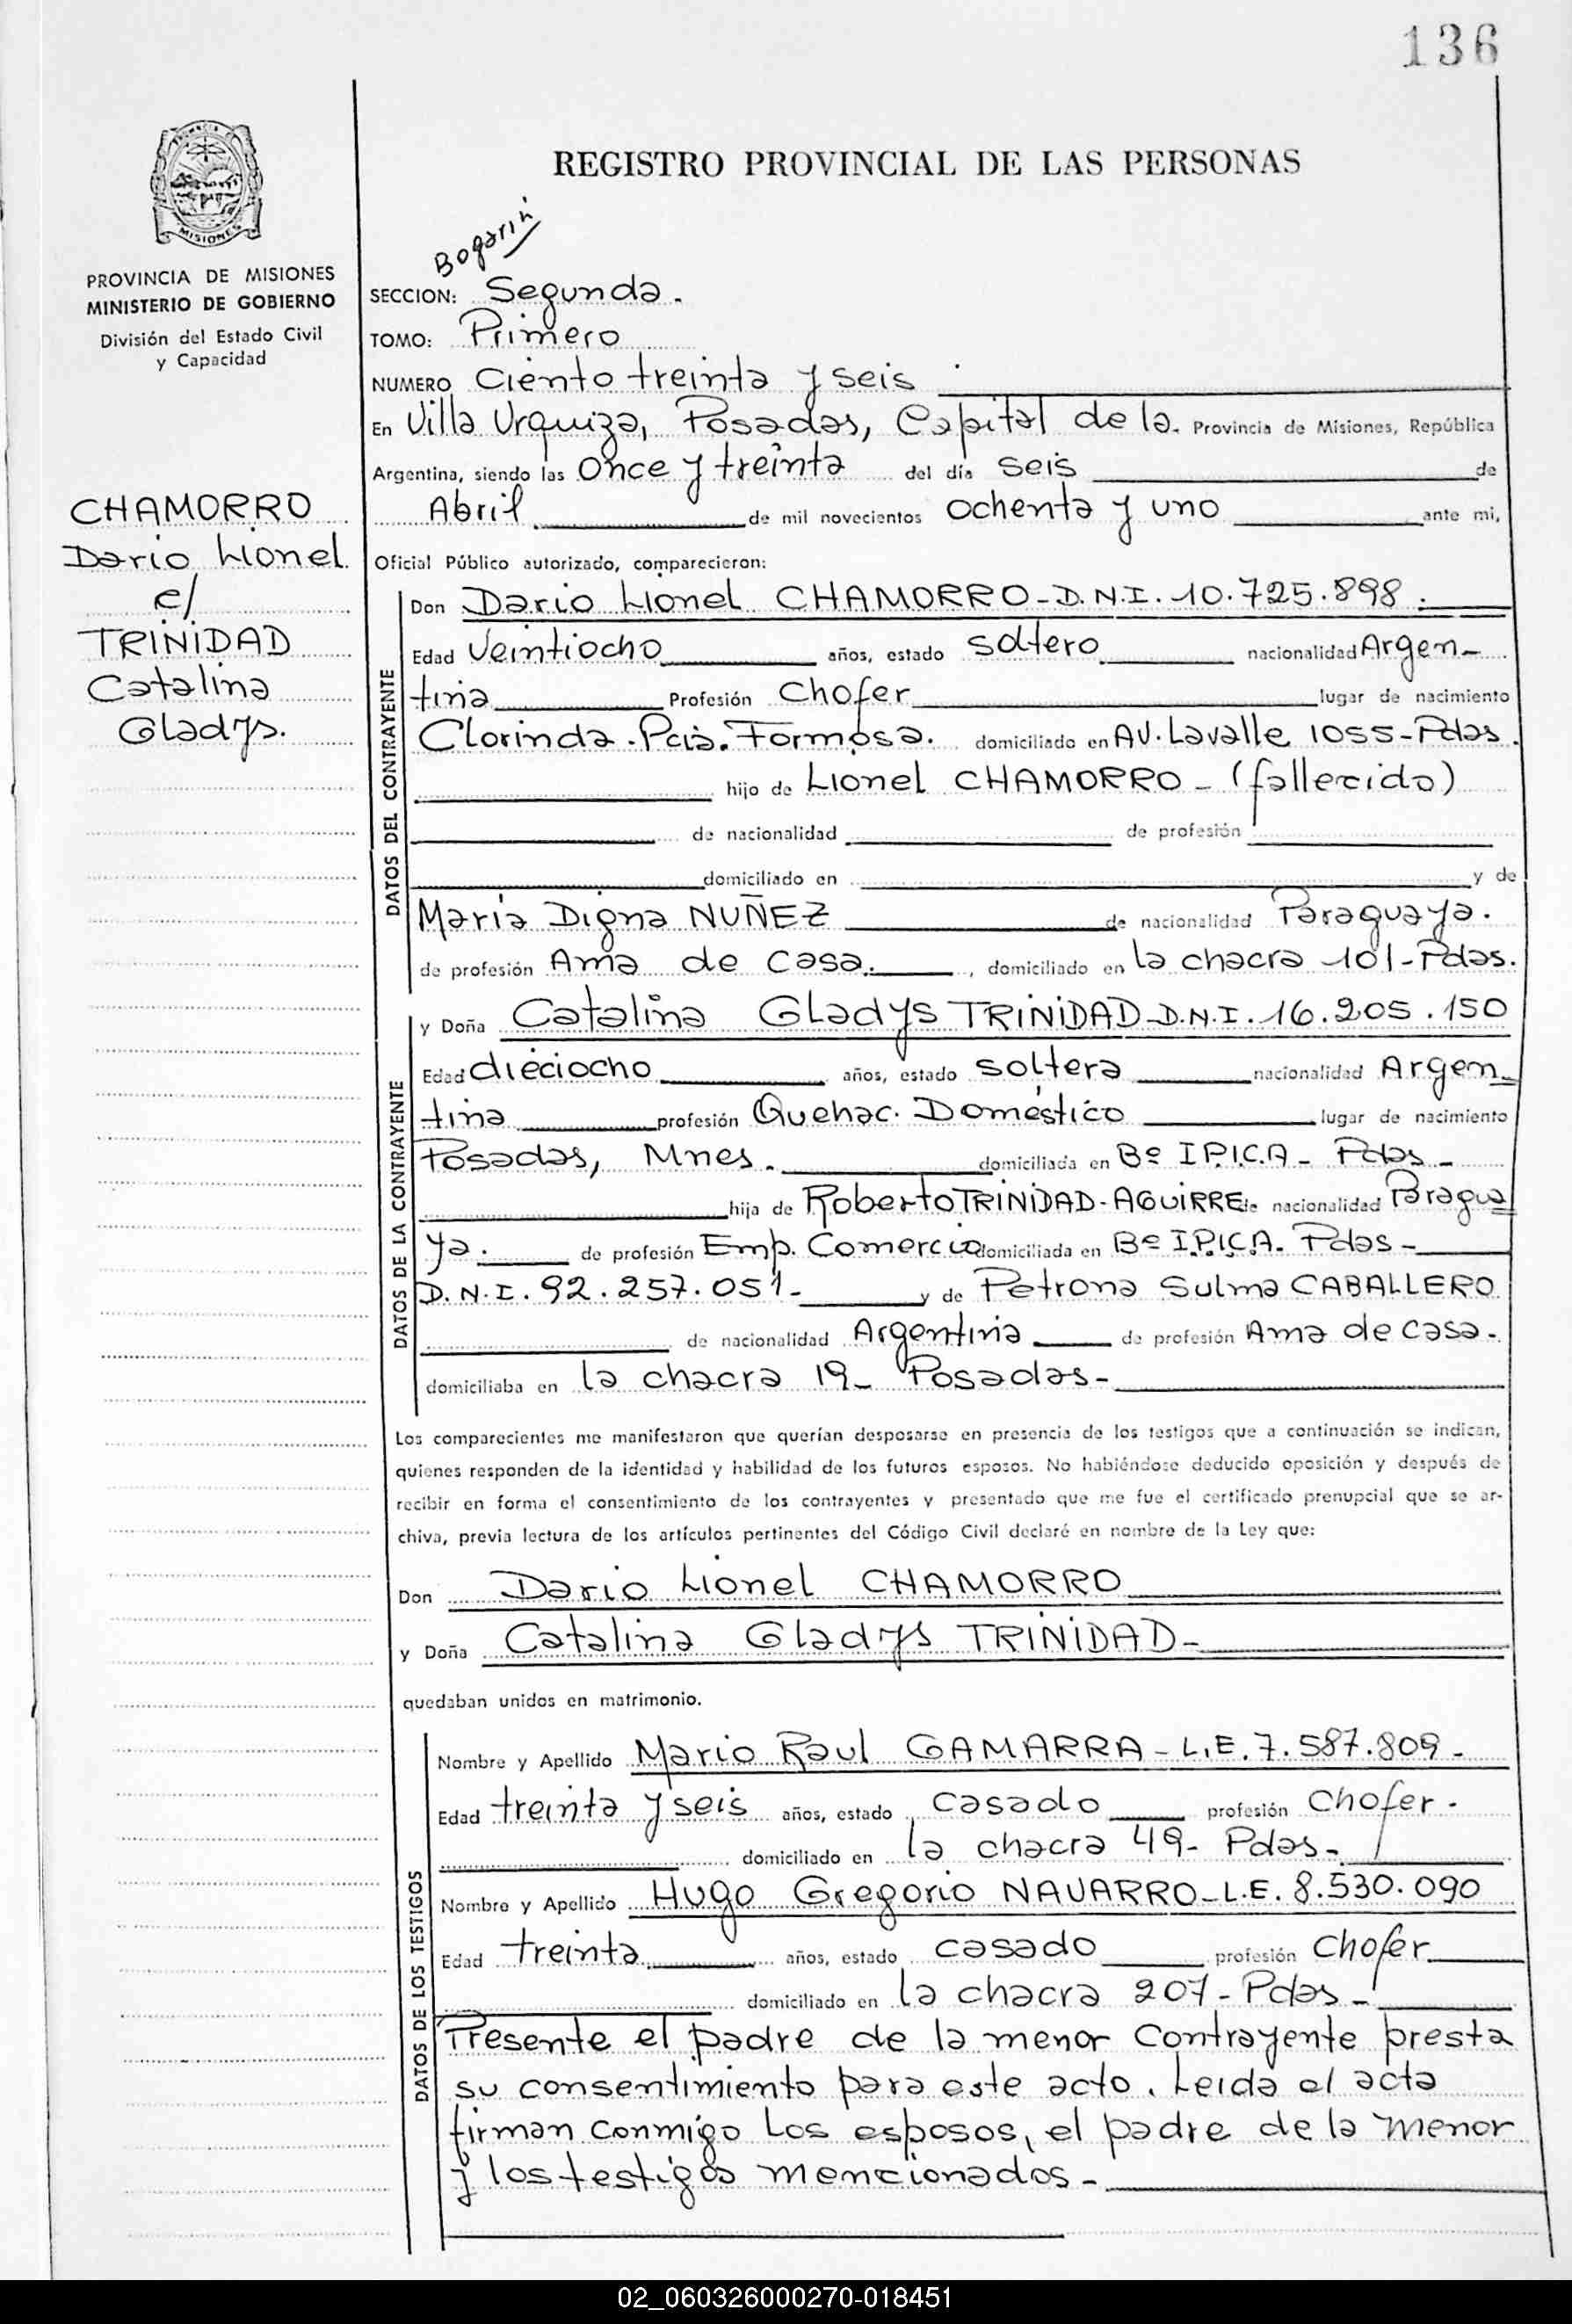 136
REGISTRO PROVINCIAL DE LAS PERSONAS
MISIONES
PROVINCIA DE MISIONES
MINISTERIO DE GOBIERNO
División del Estado Civil
y Capacidad
CHAMORRO
Dario Lionel
c/
TRINIDAD
Catalina
Gladys.
Bogarin
SECCION: Segunda.
TOMO: Primero
NUMERO Ciento treinta y seis
En Villa Urquiza, Posadas, Capital de la. Provincia de Misiones, República
Argentina, siendo las Once y treinta del día seis de
Abril de mil novecientos ochenta y uno ante mi,
Oficial Público autorizado, comparecieron:
DATOS DEL CONTRAYENTE
Don Dario Lionel CHAMORRO-D.N.I. 10.725.898.
Edad Veintiocho años, estado soltero nacionalidad Argen-
tina Profesión Chofer lugar de nacimiento
Clorinda. Pcia. Formosa. domiciliado en AV. Lavalle 1055-Pdas.
hijo de Lionel CHAMORRO - (fallecido)
de nacionalidad de profesión
domiciliado en y de
María Digna NUÑEZ de nacionalidad Paraguaya.
de profesión Ama de casa., domiciliado en la chacra 101-Pdas.
DATOS DE LA CONTRAYENTE
y Doña Catalina Gladys TRINIDAD D.N.I. 16.205.150
Edad dieciocho años, estado soltera nacionalidad Argen-
tina profesión Quehac. Doméstico lugar de nacimiento
Posadas, Mnes. domiciliada en Bº I.P.I.C.A - Pdas -
hija de Roberto TRINIDAD-AGUIRRE de nacionalidad Paragua
ya. de profesión Emp. Comercio domiciliada en Bº I.P.I.C.A. Pdas -
D.N.I. 92.257.051- y de Petrona Sulma CABALLERO
de nacionalidad Argentina de profesión Ama de casa.
domiciliaba en la chacra 19- Posadas-
Los comparecientes me manifestaron que querían desposarse en presencia de los testigos que a continuación se indican,
quienes responden de la identidad y habilidad de los futuros esposos. No habiéndose deducido oposición y después de
recibir en forma el consentimiento de los contrayentes y presentado que me fue el certificado prenupcial que se ar-
chiva, previa lectura de los artículos pertinentes del Código Civil declaré en nombre de la Ley que:
Don Dario Lionel CHAMORRO
y Doña Catalina Gladys TRINIDAD-
quedaban unidos en matrimonio.
DATOS DE LOS TESTIGOS
Nombre y Apellido Mario Raul GAMARRA - L.E. 7.587.809-
Edad treinta y seis años, estado casado profesión Chofer.
domiciliado en la chacra 49- Pdas-
Nombre y Apellido Hugo Gregorio NAVARRO-L.E. 8.530.090
Edad treinta años, estado casado profesión Chofer
domiciliado en la chacra 207-Pdas-
Presente el padre de la menor contrayente presta
su consentimiento para este acto. Leida el acta
firman conmigo los esposos, el padre de la menor
y los testigos mencionados-
02_060326000270-018451